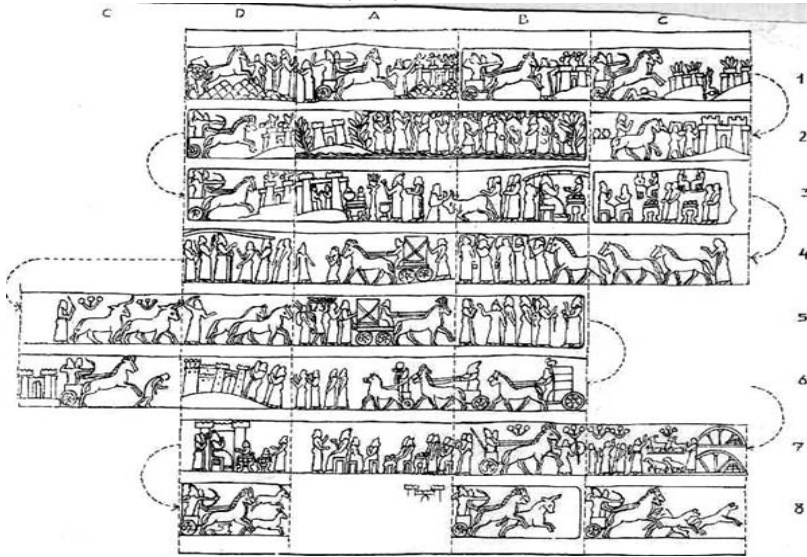 C D A B C
1
2
3
4
5
6
7
8